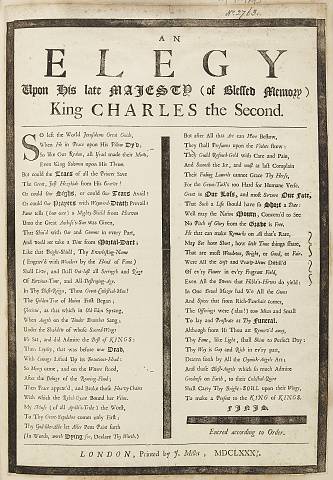 Nº 2763.
AN
ELEGY
Upon His late MAJESTY (of Blessed Memory)
King CHARLES the Second.
SO left the World Jerusalems Great Guide,
When He in Peace upon His Pillow Dy'd;
So like Our Rodan, all Israel made their Moan,
Even King Solomon upon His Throne.
But could the Tears of all the People Save
The Great, Just Hezekiah from His Grave!
Or could Our Sighs, or could Our Tears Avail!
Or could the Prayers with Winged-Death Prevail!
Fame tells (but one) a Mighty Shield from Heaven
Unto the Great Was Given,
This Shield with the and Comets in every Part,
And would not take a Dint from Mortal-Dart;
Like that Bright-Shield, Thy Everlasting-Name
(Engrav'd with Wonders by the Hand of Fame)
Shall Live, and Shall Out-last all Scepters and Rage
Of Envious-Time, and All Destroying-Age.
In Thy Blest-Reign, Thou Great Celestial-Man!
The Golden-Tide of Halcion First Began;
Glorious, as that which in Old Spring,
When Angels on the Tender Branches Sang;
Under the Shadow of whose Sacred-Wings
We Sat, and did Admire the Best of KINGS:
Then Loyalty, that was before was Dead,
With Courage Lifted Up its Beauteous-Head:
So Many came, and on the Waters stood,
After the Deluge of the Roaring-Flood;
Then Peace appear'd, and Broke those Heavy-Chains
With which the Rebel-Crew Bound her Veins.
My Muse (of all Apollo's Tribe) the Worst,
To Thy Great Sepulchre comes only First;
Thy God-like-Acts let After Poets Paint forth
(In Words, worth Dying for, Declare Thy Worth.)
But after all this Art can Have Bestow,
They shall Presume upon the Vision shew:
They Could Refined-Gold with Care and Pain,
And Smooth the Air, and would in last Complain
Their Fading Lawrels cannot Grace Thy Hearse,
For the Great-Task's too Hard for Humane Verse.
Great is Our Loss, and most Severe Our Fate,
That Such a Life should have so Short a Date:
Well may the Nation Mourn, Content'd to See
No Pitch of Glory from the Grave is Free.
He that can make Remarks on All that's Rare,
May See how Short, how little Time things share,
That are most Wondrous, Bright, or Good, or Fair.
Were All the and Distill'd
Of ev'ry Flower in ev'ry Fragrant Field,
Even All the Sweets that Hibla's-Flowers do yield;
In One Broad Mazer had We All the Gums
And Spices that from Rich-Panchaia comes,
The Offerings were (alas!) too Mean and Small
To lay and Prostrate at Thy Funeral.
Although from Us Thou art Remov'd away,
Thy Fame, like Light, shall Shine to Perfect Day:
Thy Way is Gay and Rich in ev'ry part,
Drawn forth by All the Art;
And those Blest-Angels which so much Admire
Goodness on Earth, to their Celestial-Quire
Shall Carry Thy Bright-SOUL upon their Wings,
To make a Present to the KING of KINGS.
FINIS.
Entred according to Order.
LONDON, Printed by J. Millet, MDCLXXX